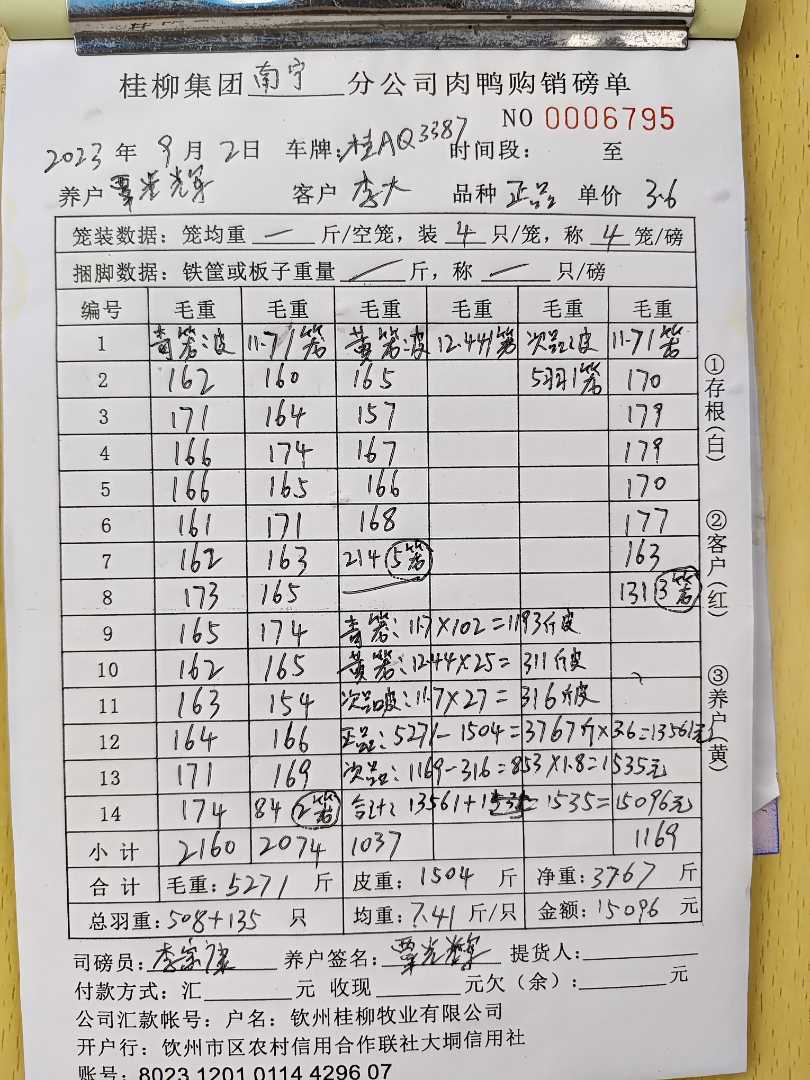 桂柳集团南宁分公司肉鸭购销磅单
NO 0006795
2023年9月2日 车牌:桂AQ3387 时间段: 至
养户 覃光辉 客户 李大 品种 正品 单价 3.6
笼装数据:笼均重 — 斤/空笼,装 4 只/笼,称 4 笼/磅
捆脚数据:铁筐或板子重量 斤,称 — 只/磅
编号 毛重 毛重 毛重 毛重 毛重 毛重
1 青笼:皮 11.7/笼 黄笼:皮 12.44/笼 次品:皮 11.7/笼
2 162 160 165 5羽1笼 170
3 171 164 157 179
4 166 174 167 179
5 166 165 166 170
6 161 171 168 177
7 162 163 214 5笼 163
8 173 165 131 3笼
9 165 174 青笼:11.7×102=1193斤皮
10 162 165 黄笼:12.44×25=311斤皮
11 163 154 次品皮:11.7×27=316斤皮
12 164 166 正品:5271-1504=3767斤×3.6=13561元
13 171 169 次品:1169-316=853×1.8=1535元
14 174 84 2笼 合计:13561+1535=1535=15096元
小计 2160 2074 1037 1169
合计 毛重:5271 斤 皮重:1504 斤 净重:3767 斤
总羽重:508+135 只 均重:7.41 斤/只 金额:15096 元
司磅员: 养户签名:覃光辉 提货人:
付款方式:汇 元 收现 元欠(余): 元
公司汇款帐号:户名:钦州桂柳牧业有限公司
开户行:钦州市区农村信用合作联社大垌信用社
账号:8023 1201 0114 4296 07
①存根(白)
②客户(红)
③养户(黄)